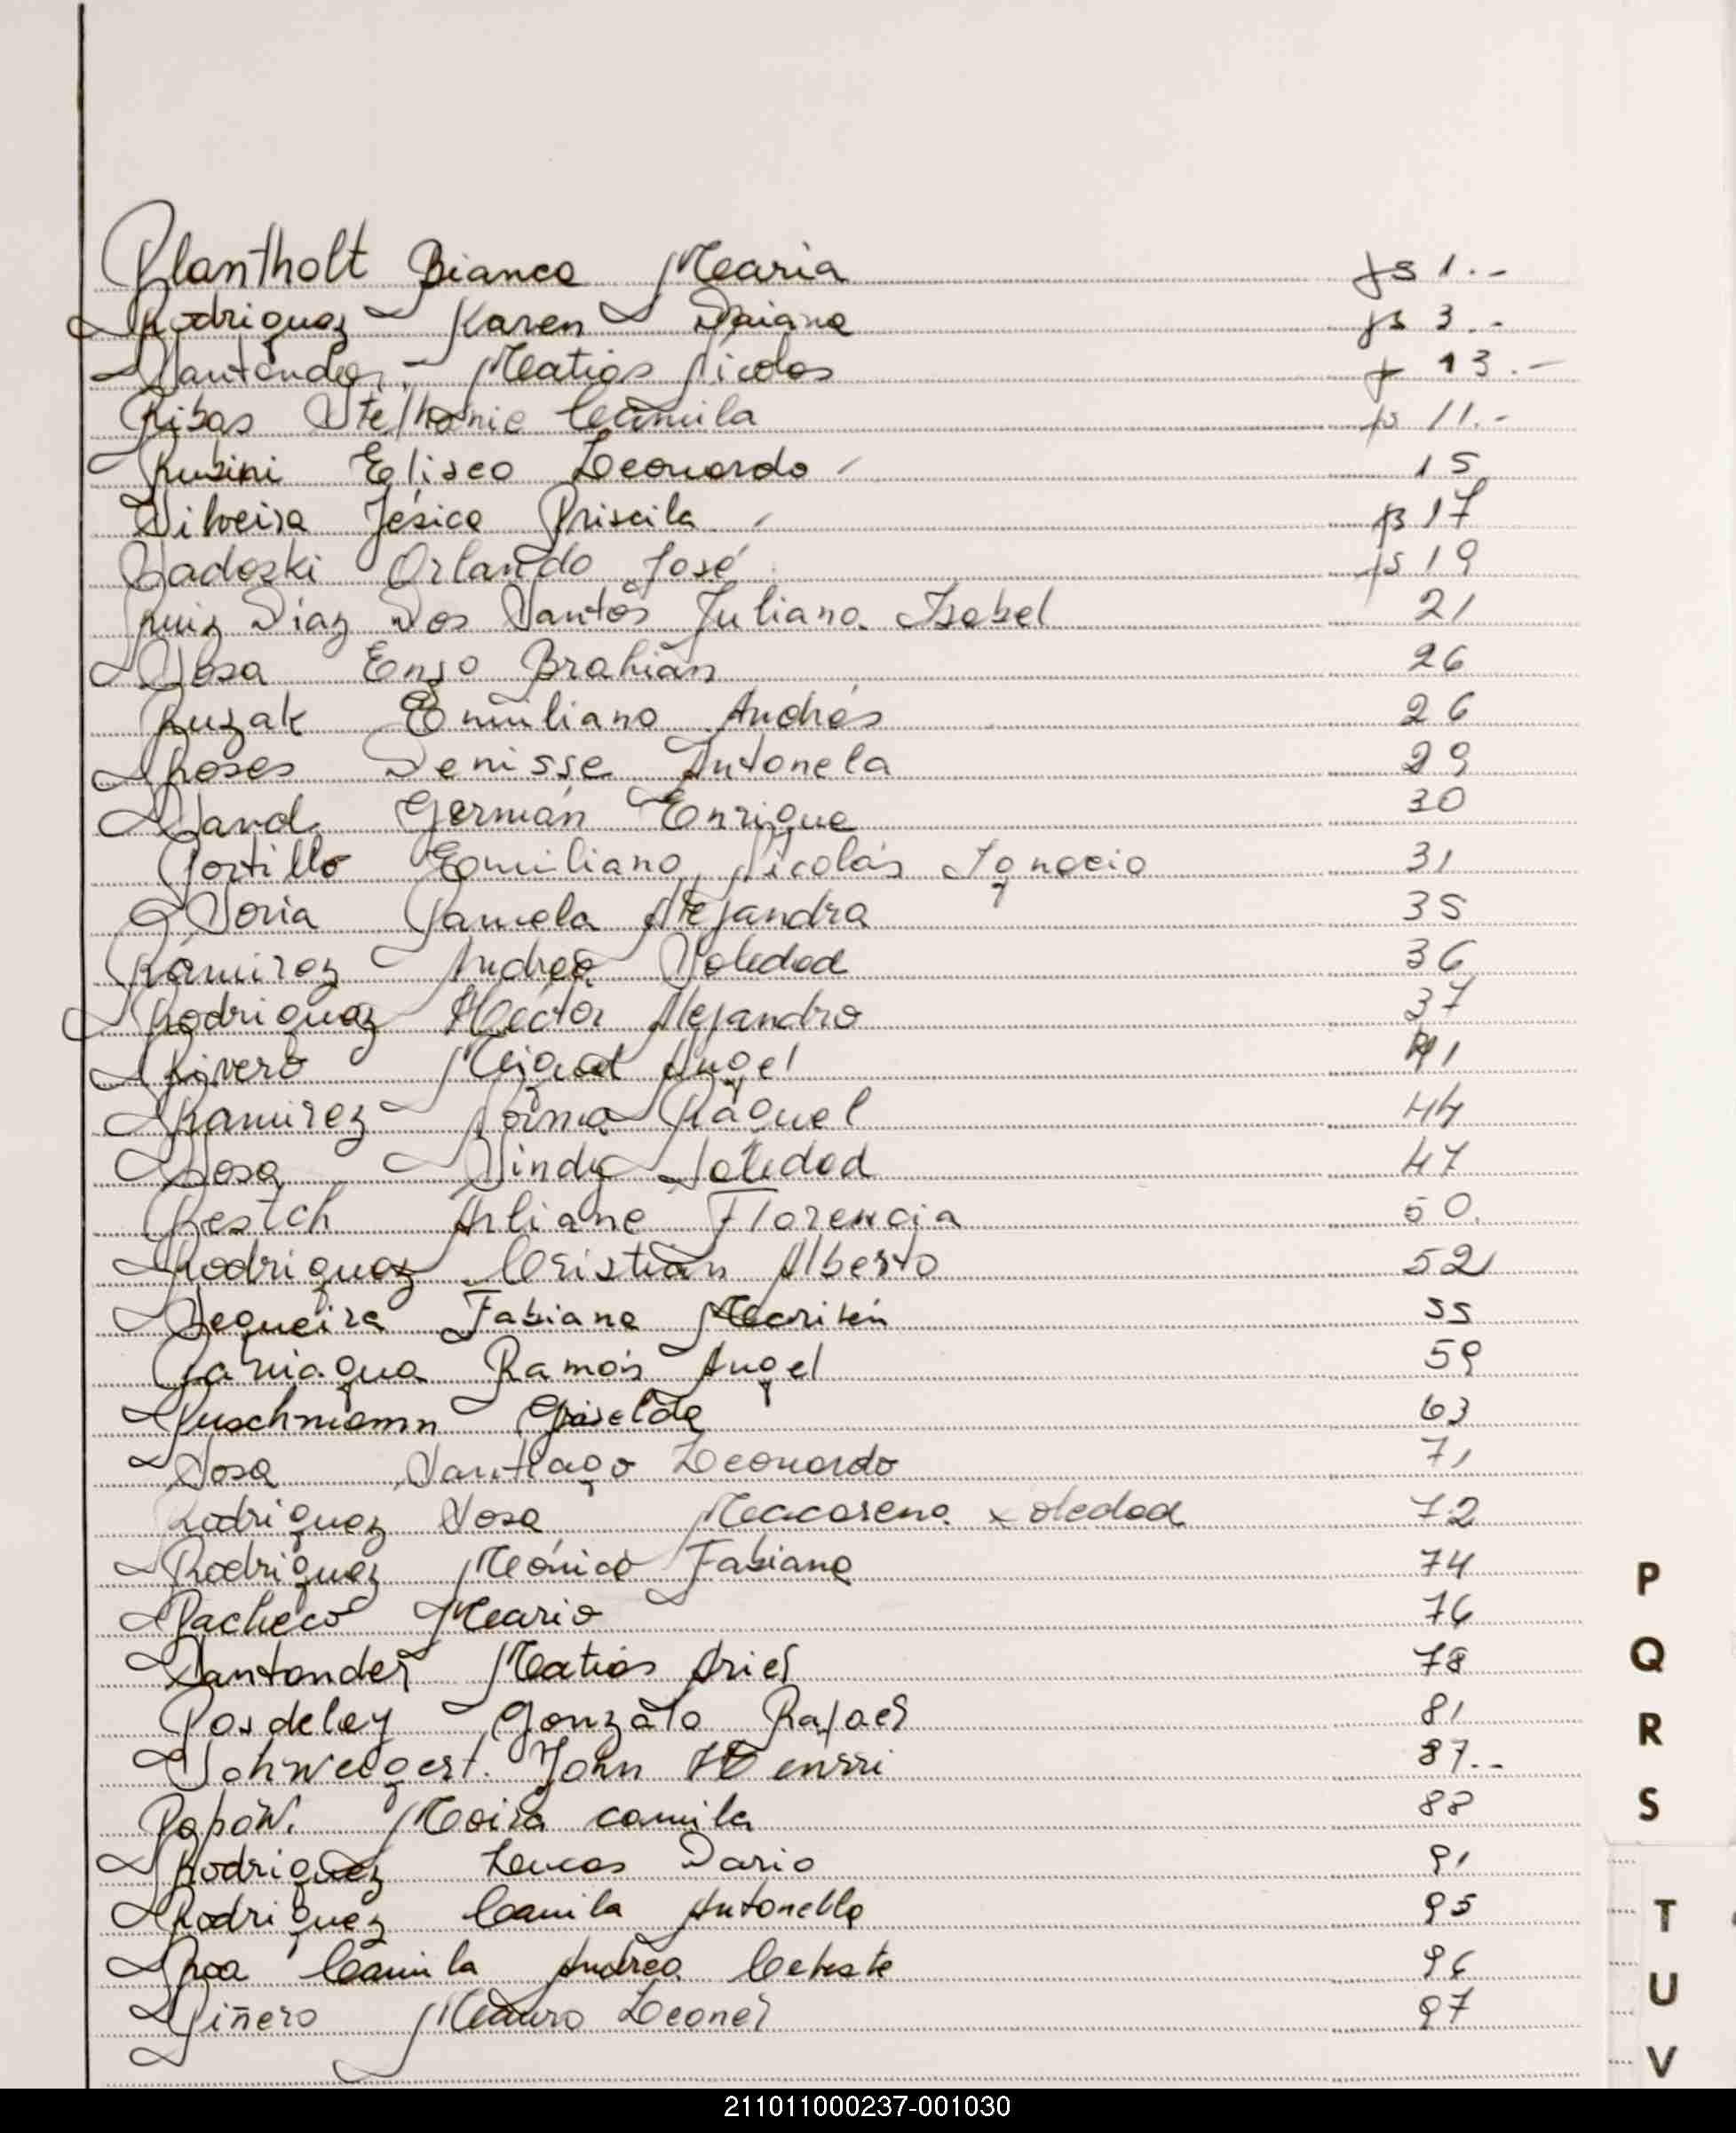 Plantholt Bianca Maria fs 1.-
Rodriguez Karen Daiana fs 3.-
Santander Matias Nicolas f 13.-
Ribas Stelhanie Camila fs 11.-
Rusini Eliseo Leonardo 15
Silveira Jésica Priscila fs 17
Badoski Orlando José fs 19
Ruiz Diaz Dos Santos Juliana Isabel 21
Sosa Enzo Brahian 26
Ruzak Emiliano Andrés 26
Roses Denisse Antonela 29
Sand Germán Enrique 30
Portillo Emiliano Nicolás Ignacio 31
Soria Pamela Alejandra 35
Ramirez Andrea Soledad 36
Rodriguez Héctor Alejandro 37
Rivero Miguel Angel 41
Ramirez Norma Raquel 44
Sosa Sindy Soledad 47
Pestch Arliane Florencia 50.
Rodriguez Cristian Alberto 52
Sequeira Fabiana Maribén 55
Paniagua Ramón Angel 59
Puschmann Griselda 63
Sosa Santiago Leonardo 71
Rodriguez Sosa Maccarena Soledad 72
Rodriguez Mónica Fabiana 74
Pacheco Mario 76
Santander Matias Ariel 78
Posdeley Gonzalo Rafael 81
Schweigert. John Henrri 87.-
Popow. Moira camila 88
Rodriguez Lucas Dario 91
Rodriguez Camila Antonella 95
Roa Camila Andrea Celeste 96
Piñero Mauro Leonel 97
P
Q
R
S
T
U
V
211011000237-001030